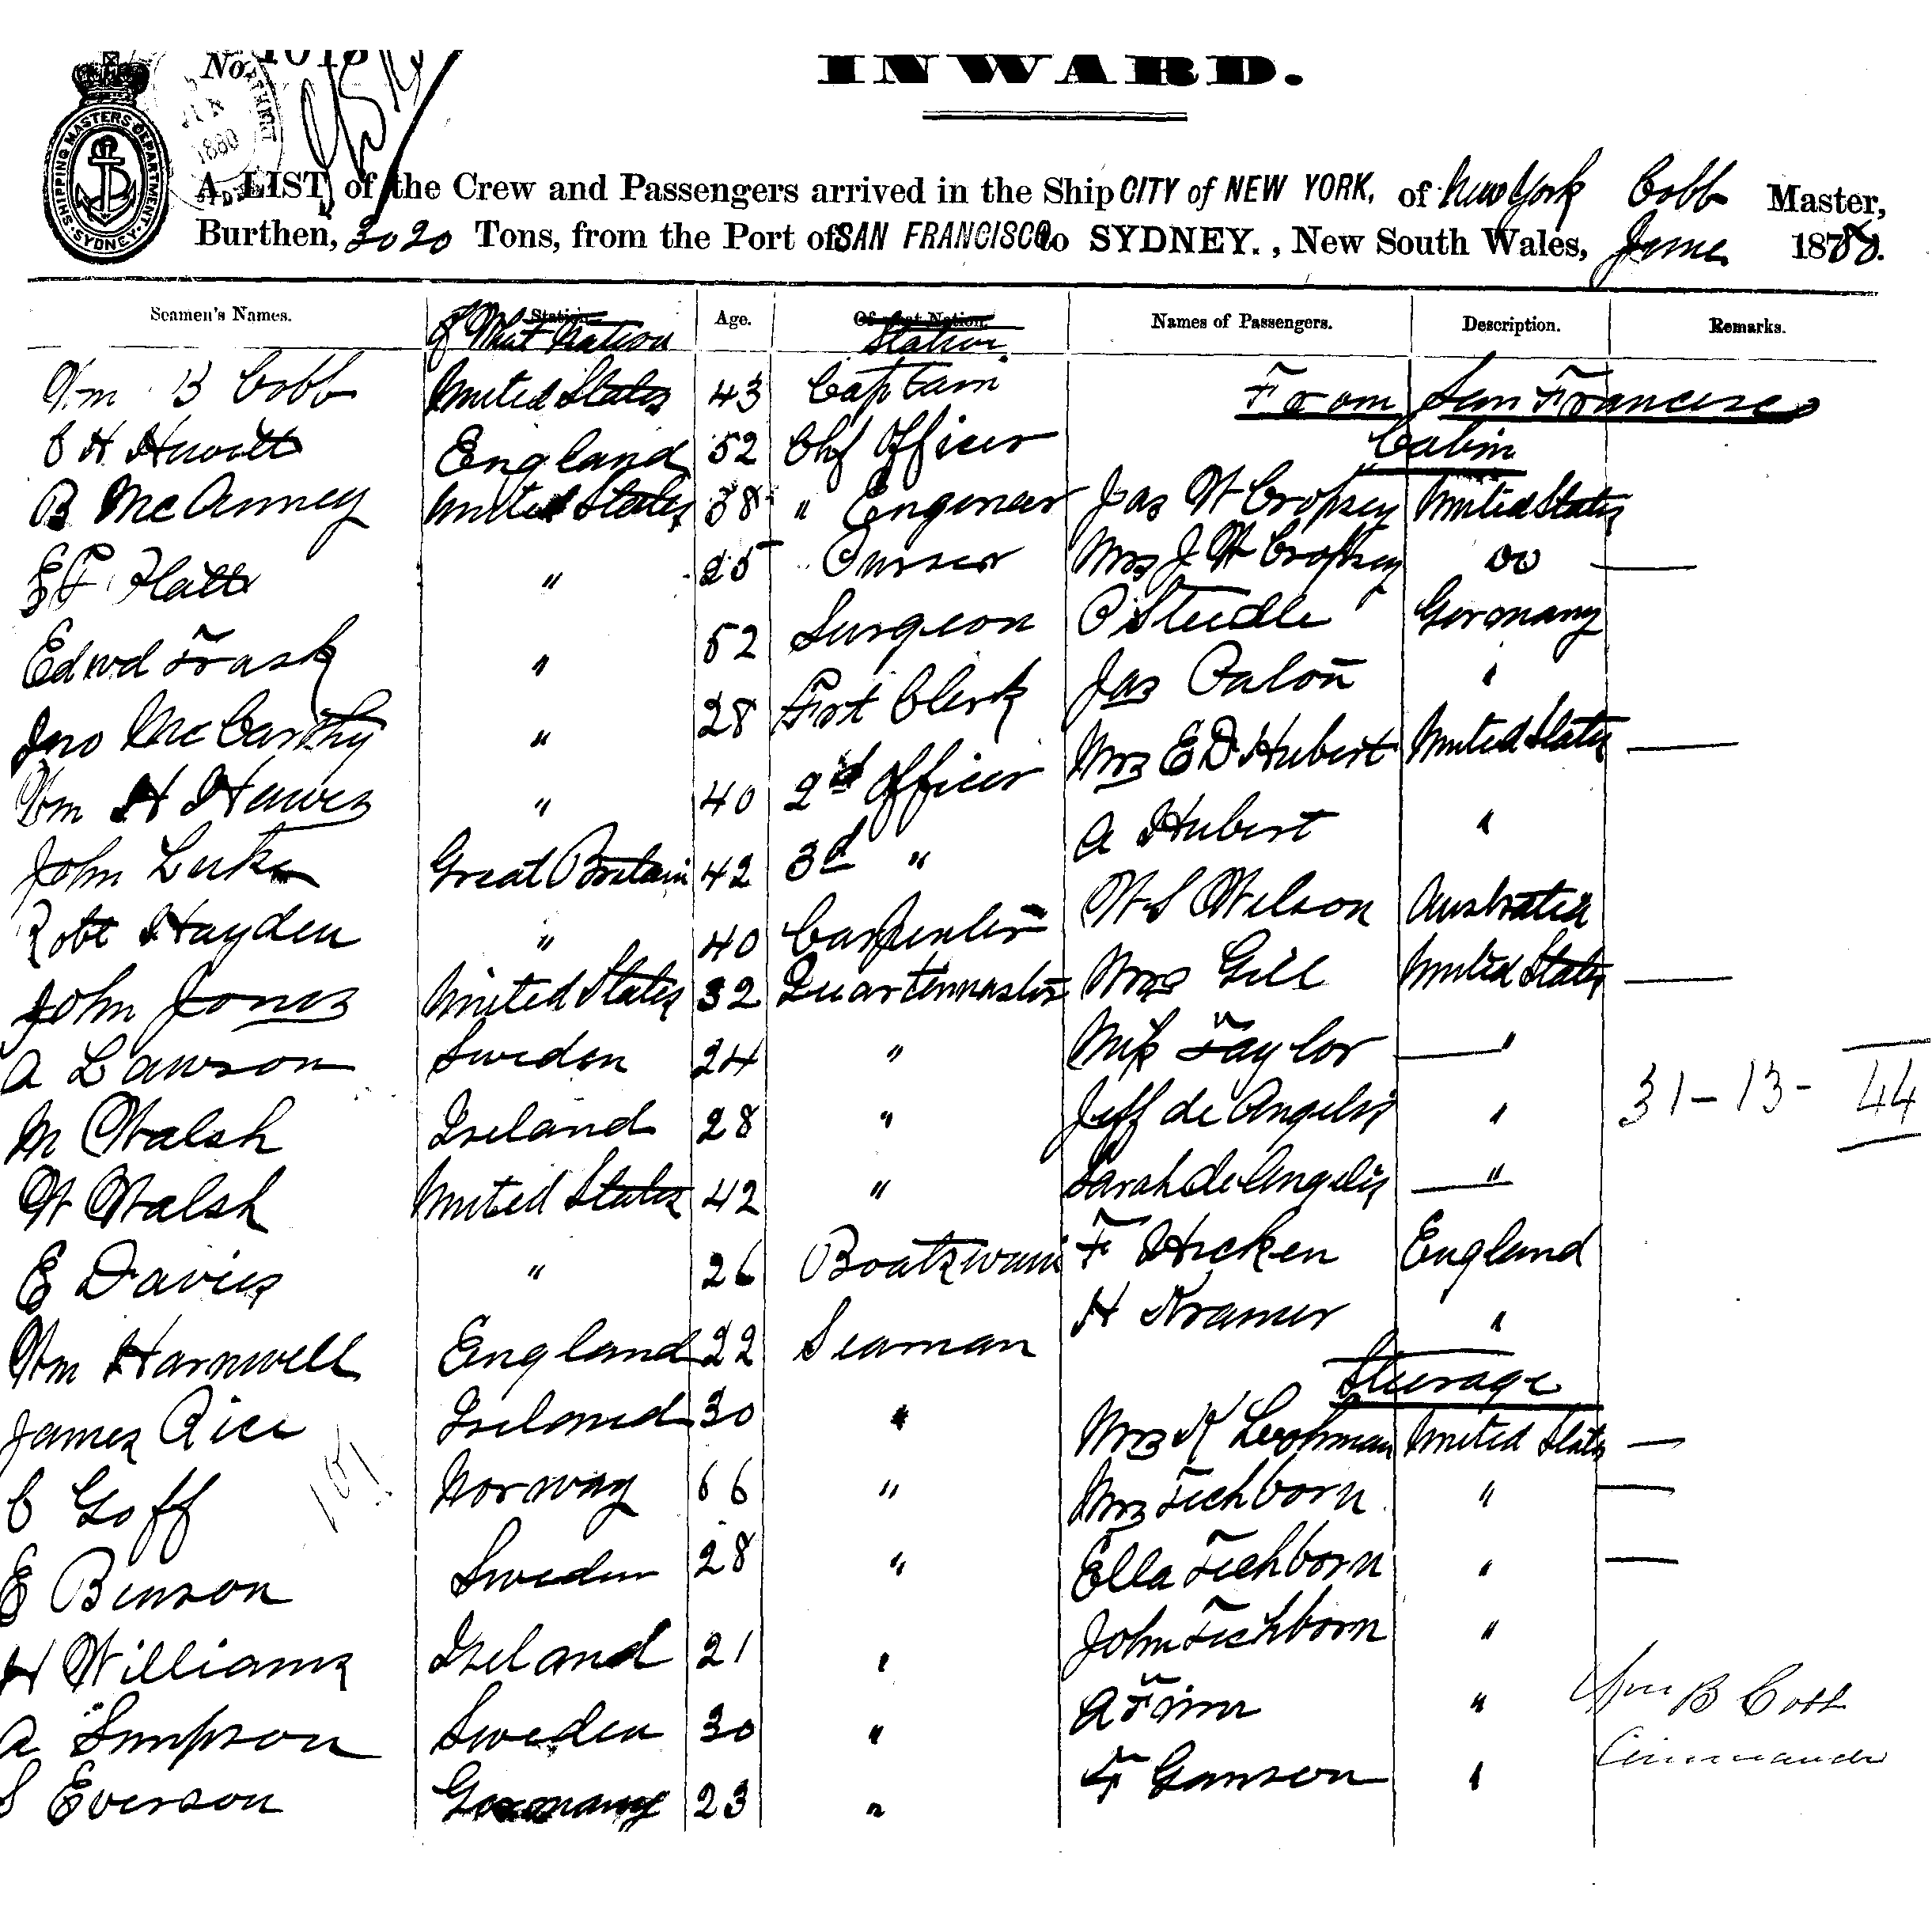 No. 1013
INWARD.
SHIPPING MASTERS DEPARTMENT SYDNEY
1880
A LIST of the Crew and Passengers arrived in the Ship CITY of NEW YORK, of New York Cobb Master,
Burthen, 3020 Tons, from the Port of SAN FRANCISCO to SYDNEY., New South Wales, June 1880.
Seamen's Names. Station Of What Nation Age. Of what Nation. Station Names of Passengers. Description. Remarks.
Wm B Cobb United States 43 Captain From San Francisco
C H Hewitt England 52 Chf Officer Cabin
B McAnney United States 38 " Engineer Jas W Cropsey United States
E F Platt " 25 Purser Mrs J W Cropsey Do —
Edwd Trask " 52 Surgeon C Steedle Germany
Jno McCarthy " 28 Frt Clerk Jas "
Wm H Hawes " 40 2nd Officer Mrs E D Hubert United States —
John Luke Great Britain 42 3d " A Hubert "
Robt Hayden " 40 Carpenter W S Wilson Australia
John Jones United States 32 Quartermaster Mrs Gill United States —
A Lawson Sweden 24 " Miss Taylor — "
M Walsh Ireland 28 " Jeff de Angelis " 31-13-44
W Walsh United States 42 " Sarah de Angelis — "
E Davies " 26 Boatswain F Hicken England
Wm Harnwell England 22 Seaman H Kramer "
Steerage
James Rice Ireland 30 " Mrs K Lechman United States —
C Goff Norway 66 " Mrs Fichborn " —
E Benson Sweden 28 " Ella Fichborn " —
H Williams Ireland 21 " John Fichborn "
A Simpson Sweden 30 " A "
S Everson Germany 23 " F Ganson "
Wm B Cobb
Commander